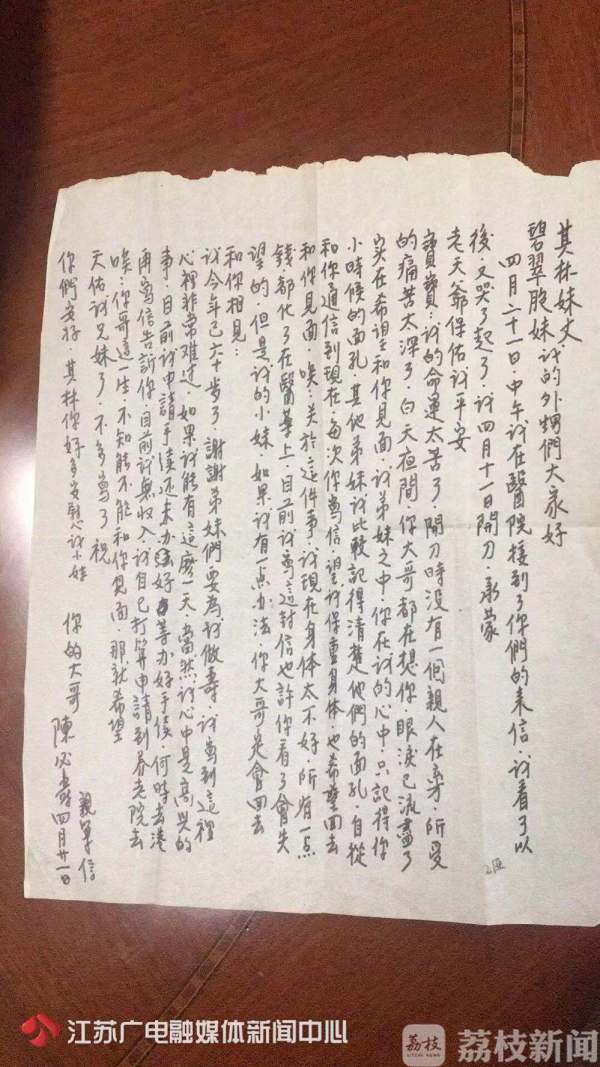 其林妹丈、
碧翠胞妹我的外甥們大家好
四月二十一日、中午我在醫院接到了你們的來信、我看了以
後、又哭了起了、我四月十一日開刀、承蒙
老天爺保佑我平安
寶寶：我的命運太苦了、開刀時沒有一個親人在旁、所受
的痛苦太深了、白天夜間、你大哥都在想你、眼淚已流盡了
实在希望和你見面、我弟妹之中、你在我的心中、只記得你
小時候的面孔、其他弟妹我比較記得清楚他們的面孔、自從
和你通信到現在、每次你寫信、望我保重身体、也希望回去
和你見面、唉、关於這件事、我現在身体太不好、所有一点
錢都化了在醫葯上、目前我寫這封信也許你看了會失
望的、但是我的小妹、如果我有一点办法、你大哥是會回去
和你相見：
我今年已六十步了、謝謝弟妹們要為我做壽、我寫到這裡
心裡非常难过、如果我能有這麽一天、當然我心中是高興的
事、目前我申請手續还未办好、等办好手续、何時去港
再寫信告訴你、目前我無收入、我自已打算申請到养老院去
唉：你哥這一生、不知能不能和你見面、那就希望
天佑我兄妹了、不多寫了祝
你們安好、其林你好多安慰我小妹
你的大哥 陳必壽 四月廿一日
親筆信
江苏广电融媒体新闻中心
荔枝
荔枝新闻